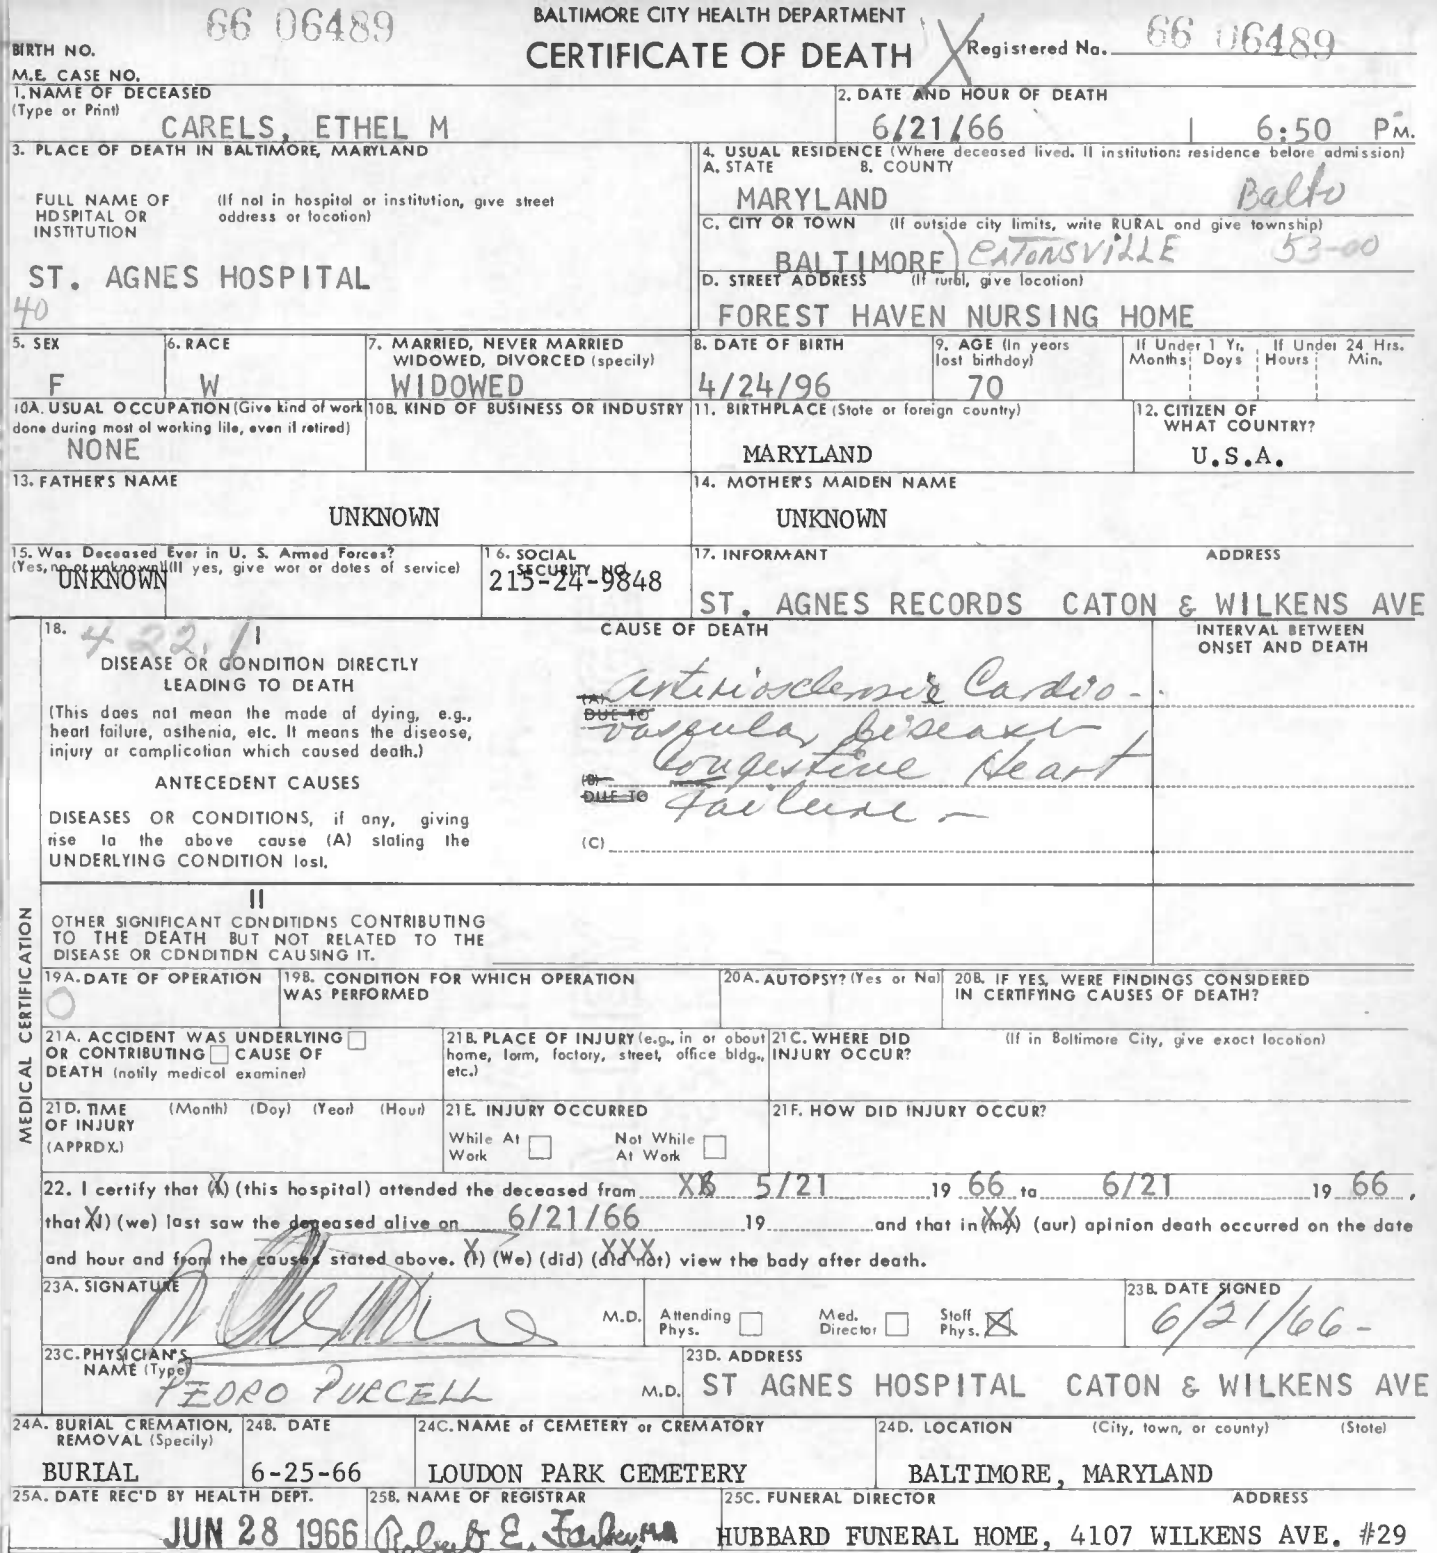 66 06489
BALTIMORE CITY HEALTH DEPARTMENT
CERTIFICATE OF DEATH
Registered No. 66 06489
BIRTH NO.
M.E. CASE NO.
1. NAME OF DECEASED
(Type or Print)
CARELS, ETHEL M
2. DATE AND HOUR OF DEATH
6/21/66 6:50 P M.
3. PLACE OF DEATH IN BALTIMORE, MARYLAND
FULL NAME OF HOSPITAL OR INSTITUTION
(If not in hospital or institution, give street address or location)
ST. AGNES HOSPITAL
40
4. USUAL RESIDENCE (Where deceased lived. If institution: residence before admission)
A. STATE B. COUNTY
MARYLAND Balto
C. CITY OR TOWN (If outside city limits, write RURAL and give township)
BALTIMORE) CATONSVILLE 53-00
D. STREET ADDRESS (If rural, give location)
FOREST HAVEN NURSING HOME
5. SEX
F
6. RACE
W
7. MARRIED, NEVER MARRIED
WIDOWED, DIVORCED (specify)
WIDOWED
8. DATE OF BIRTH
4/24/96
9. AGE (In years
last birthday)
70
If Under 1 Yr. If Under 24 Hrs.
Months Days Hours Min.
10A. USUAL OCCUPATION (Give kind of work
done during most of working life, even if retired)
NONE
10B. KIND OF BUSINESS OR INDUSTRY
11. BIRTHPLACE (State or foreign country)
MARYLAND
12. CITIZEN OF
WHAT COUNTRY?
U.S.A.
13. FATHER'S NAME
UNKNOWN
14. MOTHER'S MAIDEN NAME
UNKNOWN
15. Was Deceased Ever in U. S. Armed Forces?
(Yes, no or unknown) (If yes, give war or dates of service)
UNKNOWN
16. SOCIAL
SECURITY NO.
215-24-9848
17. INFORMANT ADDRESS
ST. AGNES RECORDS CATON & WILKENS AVE
MEDICAL CERTIFICATION
18. 422.1 I
DISEASE OR CONDITION DIRECTLY
LEADING TO DEATH
(This does not mean the mode of dying, e.g.,
heart failure, asthenia, etc. It means the disease,
injury or complication which caused death.)
ANTECEDENT CAUSES
DISEASES OR CONDITIONS, if any, giving
rise to the above cause (A) stating the
UNDERLYING CONDITION last.
CAUSE OF DEATH
(A) Arteriosclerosis Cardio-
DUE TO vascular Disease
(B) Congestive Heart
DUE TO Failure -
(C)
INTERVAL BETWEEN
ONSET AND DEATH
II
OTHER SIGNIFICANT CONDITIONS CONTRIBUTING
TO THE DEATH BUT NOT RELATED TO THE
DISEASE OR CONDITION CAUSING IT.
19A. DATE OF OPERATION
0
19B. CONDITION FOR WHICH OPERATION
WAS PERFORMED
20A. AUTOPSY? (Yes or No)
20B. IF YES, WERE FINDINGS CONSIDERED
IN CERTIFYING CAUSES OF DEATH?
21A. ACCIDENT WAS UNDERLYING
OR CONTRIBUTING CAUSE OF
DEATH (notify medical examiner)
21B. PLACE OF INJURY (e.g., in or about
home, farm, factory, street, office bldg.,
etc.)
21C. WHERE DID
INJURY OCCUR?
(If in Baltimore City, give exact location)
21D. TIME (Month) (Day) (Year) (Hour)
OF INJURY
(APPROX.)
21E. INJURY OCCURRED
While At Work
Not While At Work
21F. HOW DID INJURY OCCUR?
22. I certify that (X) (this hospital) attended the deceased from 5/21 19 66 to 6/21 19 66,
that (I) (we) last saw the deceased alive on 6/21/66 19 and that in (my) (our) opinion death occurred on the date
and hour and from the causes stated above. (I) (We) (did) (did not) view the body after death.
23A. SIGNATURE
M.D.
Attending Phys.
Med. Director
Staff Phys. X
23B. DATE SIGNED
6/21/66-
23C. PHYSICIAN'S
NAME (Type)
PEDRO PURCELL M.D.
23D. ADDRESS
ST AGNES HOSPITAL CATON & WILKENS AVE
24A. BURIAL CREMATION,
REMOVAL (Specify)
BURIAL
24B. DATE
6-25-66
24C. NAME of CEMETERY or CREMATORY
LOUDON PARK CEMETERY
24D. LOCATION (City, town, or county) (State)
BALTIMORE, MARYLAND
25A. DATE REC'D BY HEALTH DEPT.
JUN 28 1966
25B. NAME OF REGISTRAR
Robert E. Farber, MD
25C. FUNERAL DIRECTOR ADDRESS
HUBBARD FUNERAL HOME, 4107 WILKENS AVE. #29